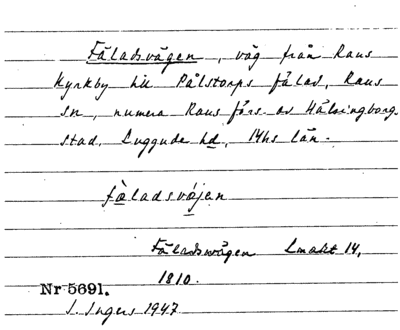 Fäladsvägen, väg från Raus
Kyrkby till Pålstorps fälad, Raus
sn, numera Raus förs. av Hälsingborgs
stad, Luggude hd, Mhs län.
fäladsvä̱jen
Fäladswägen Lmakt 14,
1810.
Nr 5691.
I. Ingers 1947